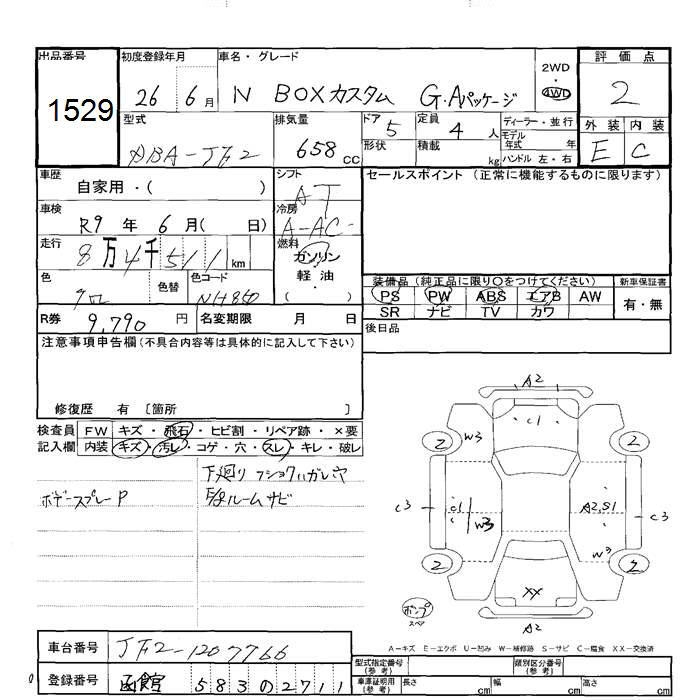 出品番号 初度登録年月 車名・グレード 2WD 評価点
1529 26 6月 N BOXカスタム G.Aパッケージ 4WD 2
型式 排気量 ドア 5 定員 4人 ディーラー・並行 外装 内装
DBA-JF2 658cc 形状 積載 kg モデル年式 年 ハンドル 左・右 E C
車歴 自家用・( ) シフト AT セールスポイント(正常に機能するものに限ります)
車検 R9年 6月( 日) 冷房 A-AC
走行 8万4千511km 燃料 ガソリン
色 クロ 色替 色コード NH850 軽油 ( ) 装備品(純正品に限り〇をつけてください) 新車保証書
PS PW ABS エアB AW 有・無
SR ナビ TV カワ
R券 9,790円 名変期限 月 日 後日品
注意事項申告欄(不具合内容等は具体的に記入して下さい)
修復歴 有 〔箇所 〕
検査員 FW キズ・飛石・ヒビ割・リペア跡・×要
記入欄 内装 キズ・汚レ・コゲ・穴・スレ・キレ・破レ
下廻り
ボデースプレーP ルームサビ
A2
C1
2 W3 2
C3 C1 W3 A2,S1 C3
W3
2 XX 2
ポンプ
スペア
A2
A-キズ E-エクボ U-凹み W-補修跡 S-サビ C-腐食 XX-交換済
車台番号 JF2-1207766 型式指定番号(参考) 類別区分番号(参考)
登録番号 函館 583 の 2711 車庫証明用(参考) 長さ cm 幅 cm 高さ cm